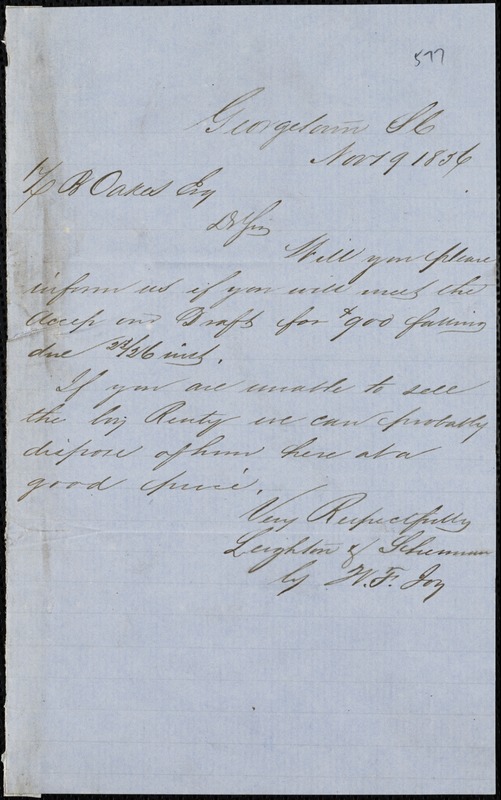 577
Georgetown SC
Nov 19 1856
Z B Oakes Esq
Dr Sir
Will you please
inform us if you will meet the
accep on Draft for $900 falling
due 23/26 inst.
If you are unable to sell
the boy Renty we can probably
dispose of him here at a
good price.
Very Respectfully
Leighton & Sherman
by W. F. Joy